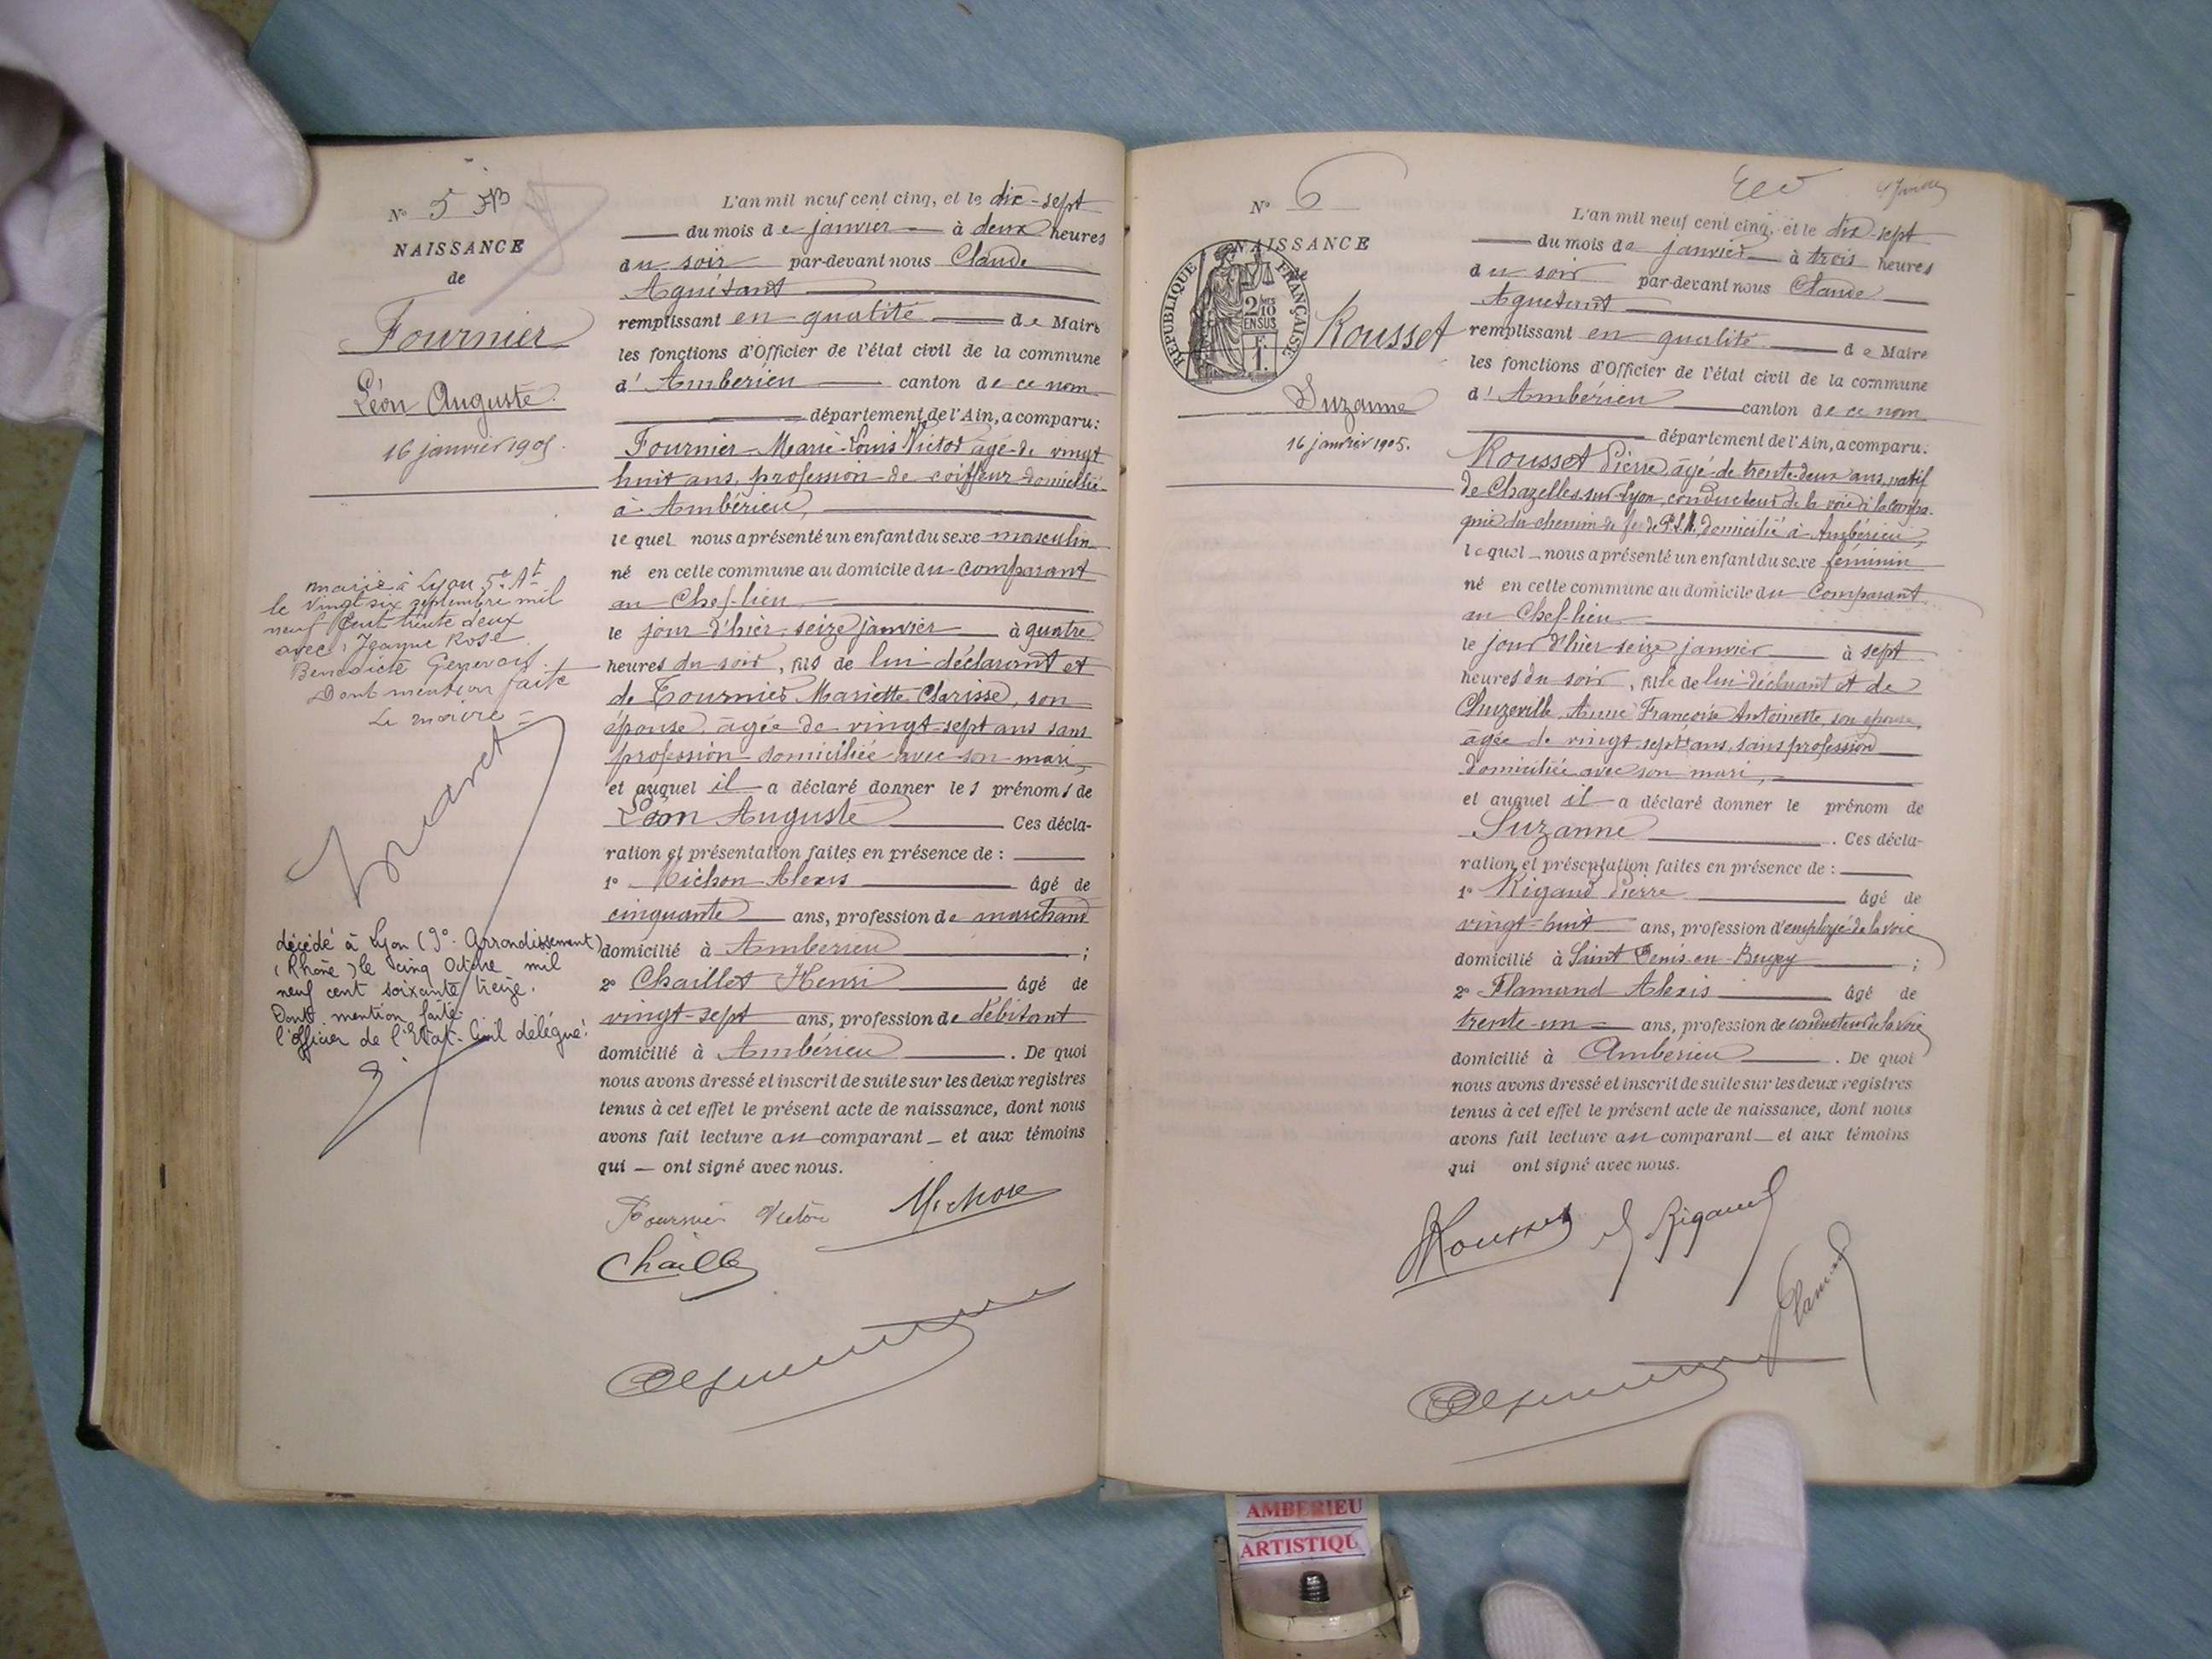 N° 5
NAISSANCE
de
Fournier
Léon Auguste
16 janvier 1905.
marié à Lyon 5e At
le vingt six septembre mil
neuf cent trente deux
avec Jeanne Rose
Benedicte Genevois
Dont mention faite
Le maire
décédé à Lyon (9e Arrondissement)
(Rhône) le cinq Octobre mil
neuf cent soixante treize.
Dont mention faite
l'officier de l'Etat-Civil délégué:
L'an mil neuf cent cinq, et le dix-sept
du mois de janvier à deux heures
du soir par-devant nous Claude
Aguétant
remplissant en qualité de Maire
les fonctions d'Officier de l'état civil de la commune
d'Ambérieu canton de ce nom
département de l'Ain, a comparu:
Fournier Marie Louis Victor âgé de vingt
huit ans, profession de coiffeur domicilié
à Ambérieu,
lequel nous a présenté un enfant du sexe masculin
né en cette commune au domicile du comparant
au Chef-lieu
le jour d'hier seize janvier à quatre
heures du soir, fils de lui déclarant et
de Tournier Mariette Clarisse, son
épouse, âgée de vingt-sept ans sans
profession domiciliée avec son mari,
et auquel il a déclaré donner les prénoms de
Léon Auguste Ces décla-
ration et présentation faites en présence de :
1° Michon Alexis âgé de
cinquante ans, profession de marchand
domicilié à Ambérieu ;
2° Chaillet Henri âgé de
vingt-sept ans, profession de débitant
domicilié à Ambérieu . De quoi
nous avons dressé et inscrit de suite sur les deux registres
tenus à cet effet le présent acte de naissance, dont nous
avons fait lecture au comparant et aux témoins
qui ont signé avec nous.
Fournier Victor Michon
Chaillet
N° 6
NAISSANCE
de
REPUBLIQUE FRANÇAISE
2/10 EN SUS
Rousset
Suzanne
16 janvier 1905.
L'an mil neuf cent cinq, et le dix-sept
du mois de janvier à trois heures
du soir par-devant nous Claude
Aguétant
remplissant en qualité de Maire
les fonctions d'Officier de l'état civil de la commune
d'Ambérieu canton de ce nom
département de l'Ain, a comparu:
Rousset Pierre, âgé de trente-deux ans, natif
de Chazelles-sur-Lyon, conducteur de la voie à la compa-
gnie du chemin de fer de P.L.M. domicilié à Ambérieu,
lequel nous a présenté un enfant du sexe féminin
né en cette commune au domicile du Comparant
au Chef-lieu
le jour d'hier seize janvier à sept
heures du soir, fille de lui déclarant et de
Chuzeville Anne Françoise Antoinette, son épouse,
âgée de vingt-sept ans, sans profession
domiciliée avec son mari,
et auquel il a déclaré donner le prénom de
Suzanne . Ces décla-
ration et présentation faites en présence de :
1° Rigaud Pierre âgé de
vingt-huit ans, profession d'employé de la voie
domicilié à Saint Denis-en-Bugey ;
2° Flamand Alexis âgé de
trente-un ans, profession de conducteur de la voie
domicilié à Ambérieu . De quoi
nous avons dressé et inscrit de suite sur les deux registres
tenus à cet effet le présent acte de naissance, dont nous
avons fait lecture au comparant et aux témoins
qui ont signé avec nous.
Rousset Rigaud
Flamand
AMBERIEU
ARTISTIQU